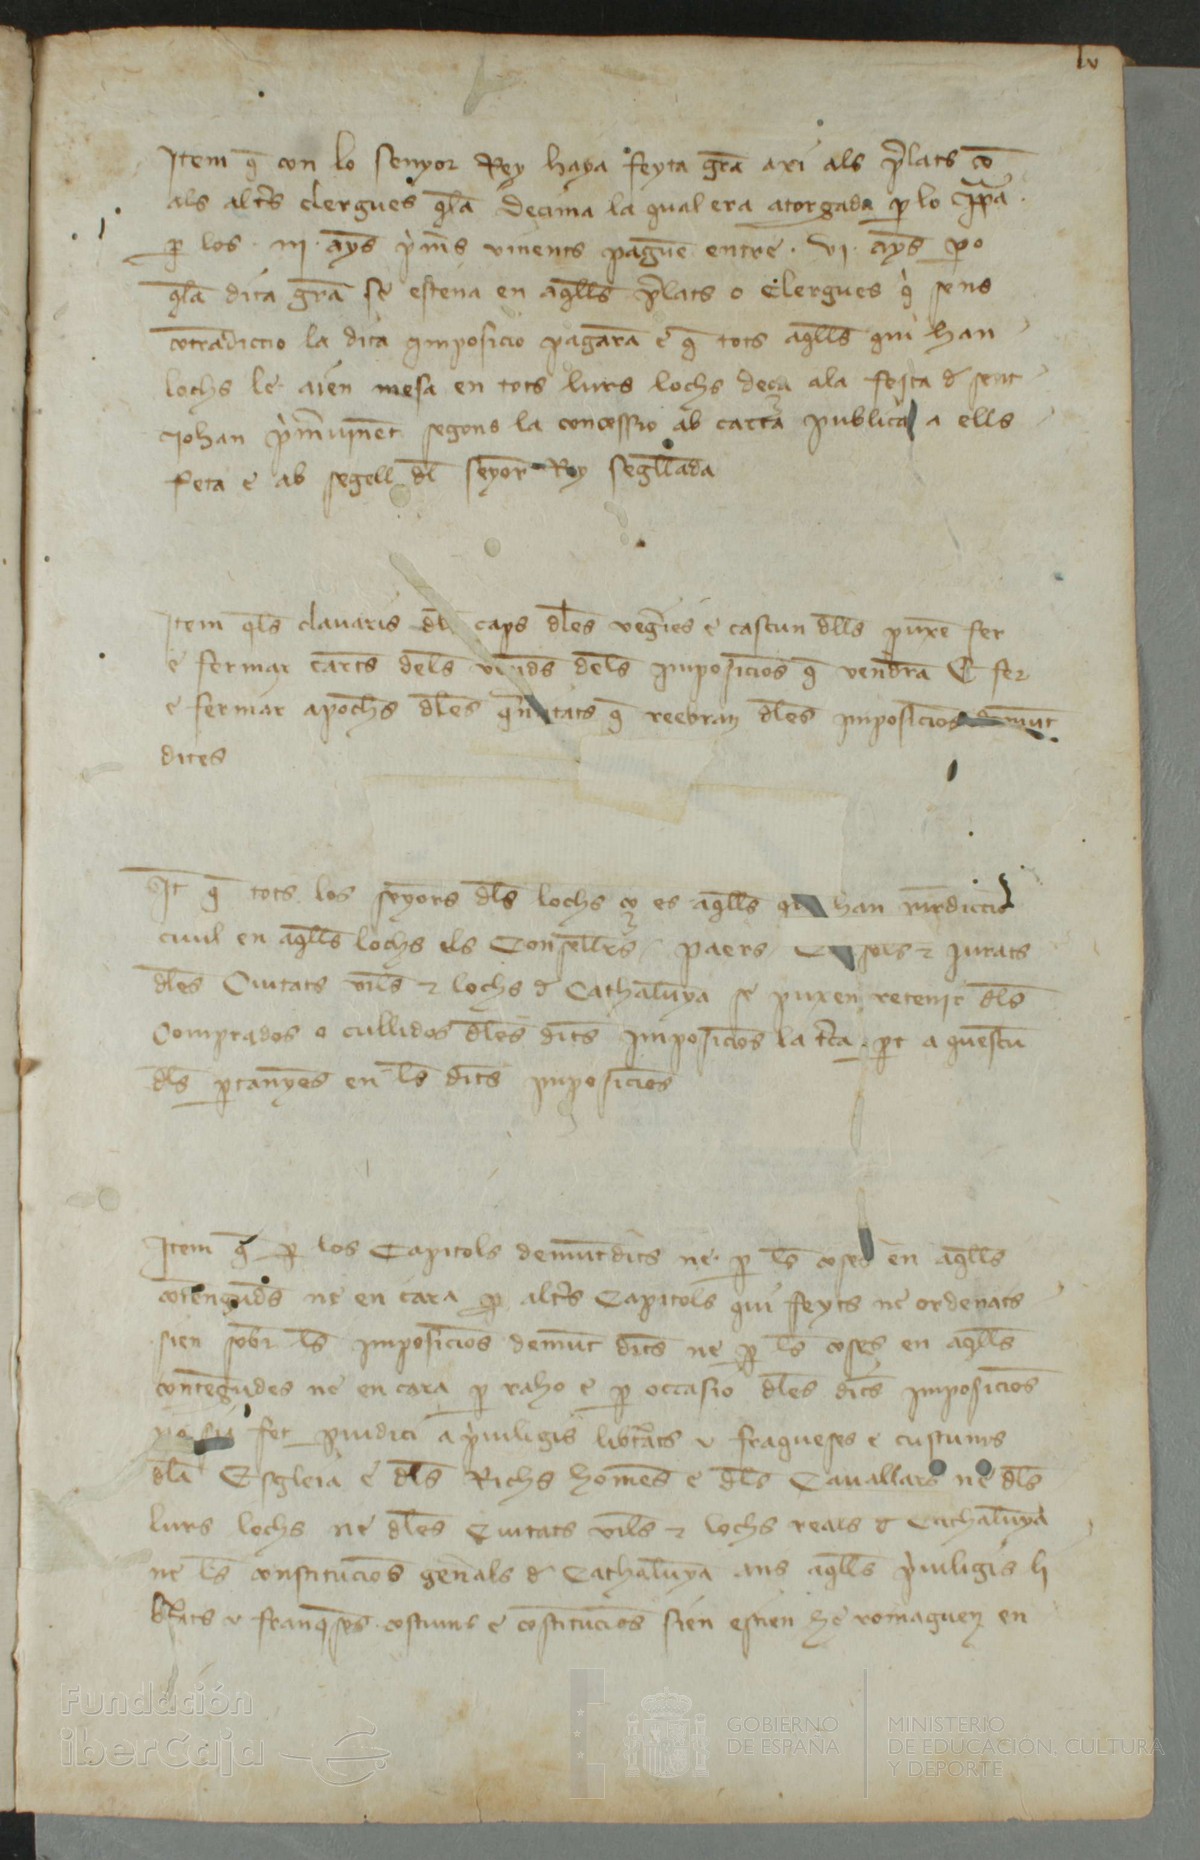 lv
Item q̄ con lo senyor Rey haya feyta grā axi als p̄lats cō
als alt̄s clergues q̄lā decima la qual era atorgada p̱ lo
p̱ los · iii · āys p̄m̄s vinents pagūe entre · vi · āys p̱o
q̄lā dita grā se estena en aq̄lls p̄lats o clergues q̄ sens
cōtradiccio la dita imposicio pagarā e q̄ tots aq̄lls qui han
lochs le aien mesa en tots lurs lochs deça ala festa d sent
Johan p̄mvinēt segons la concessio ab carta publica a ells
feta e ab segell dl̄ seyor Rey segl̄lada
Item q̄ls clavaris dl̄s caps dl̄es vegīes e cascun dl̄ls puxē fer
e fermar carts dels dels imposicios q̄ vendrā E fer
e fermar apochs dl̄es q̄ntitats q̄ reebran dl̄es imposicios demūt
dites
It̄ q̄ tots los seyors dl̄s lochs ço es aq̄lls qui han iur̄diccio
civil en aq̄lls lochs els Consellr̄s / paers / Consols ⁊ jurats
dl̄es Ciutats vil̄s ⁊ lochs d Cathalūya se puxen retenir dl̄s
Compradōs o cullidōs dl̄es dits imposicios la t̄ca p̱t a quescū
dl̄s p̱tanyēs en l̄s dits imposicios
Item q̄ p̱ los Capitols demūtdits ne p̱ l̄s coses en aq̄lls
cōtenguds ne en cara p̱ alt̄s Capitols qui feyts ne ordenats
sien sobr̄ l̄s imposicios demūt dits ne p̱ l̄s coses en aq̄lls
contēgudes ne en cara p̱ raho e p̱ occasio dl̄es dits imposicios
no sia fet p̱iudici a p̄viligis lib̄tats v fraqueses e custums
dl̄a Esgleia e dl̄s Richs homēs e dl̄s Cavallars ne dl̄s
lurs lochs ne dl̄es Ciutats vil̄s ⁊ lochs reals d Cathalūya
ne l̄s constitucios gen̄als d Cathalūya ans aq̄lls p̄viligis li
b̄tats v franq̄ses costums e cōstitucios sien estien he romaguen en
Fundación
iberCaja
GOBIERNO
DE ESPAÑA
MINISTERIO
DE EDUCACIÓN, CULTURA
Y DEPORTE